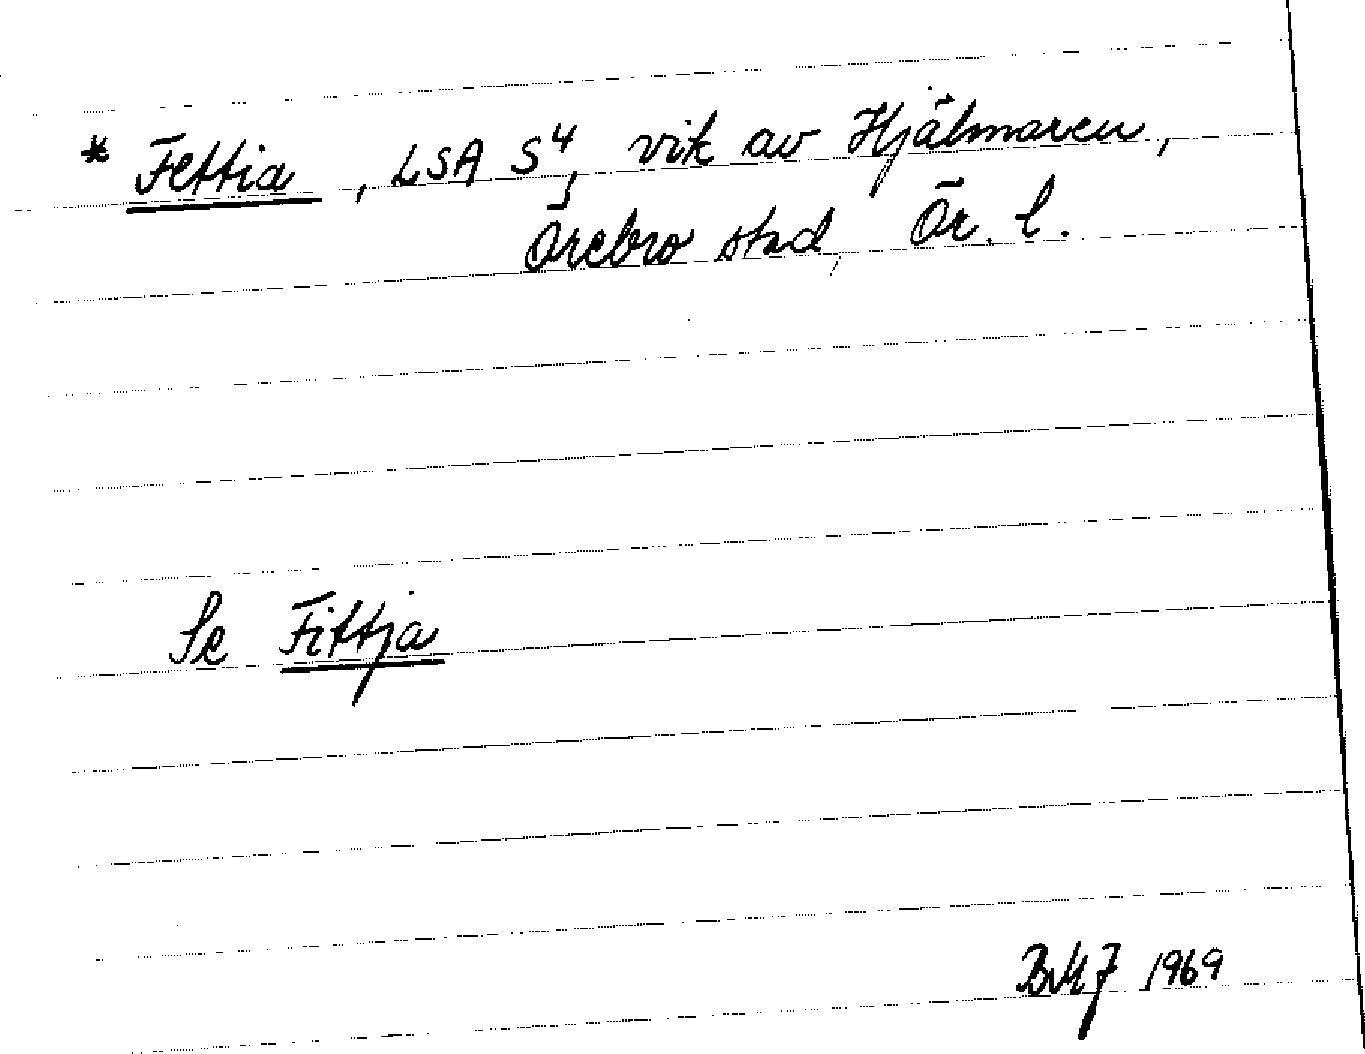 * Fettia, LSA S⁴, vik av Hjälmaren,
Örebro stad, Ör. l.
Se Fittja
BMJ 1969